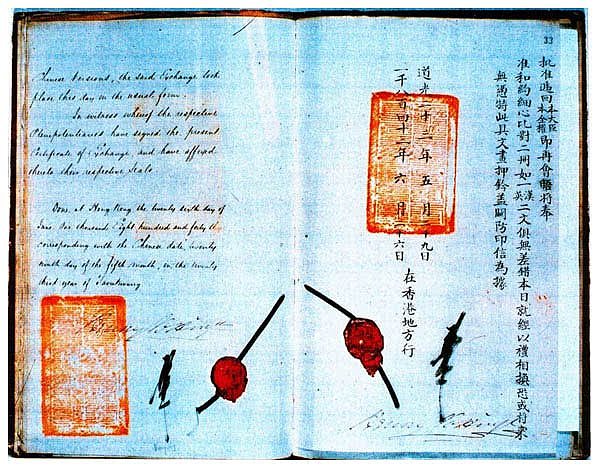 Chinese Versions, the said Exchange took
place this day in the usual form.
In witness whereof the respective
Plenipotentiaries have signed the present
Certificate of Exchange, and have affixed
thereto their respective Seals.
Done at Hong Kong the twenty sixth day of
June One thousand Eight hundred and forty
corresponding with the Chinese date, twenty
ninth day of the fifth month, in the twenty
third year of Taoukwang
Henry Pottinger
33
批准遞回本大臣本全權即再會晤將奉
准和約細心比對二冊如一漢英二文俱無差錯本日就經以禮相換恐或將來
無憑特此具文畫押鈐蓋關防印信為據
道光二十三年五月二十九日
一千八百四十三年六月二十六日
在香港地方行
Henry Pottinger